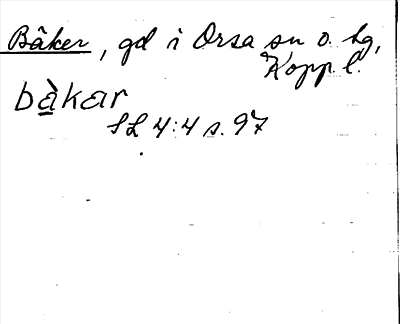 Båker, gd i Orsa sn o. hg,
Kopp l.
bàkar
SL 4:4 s. 97